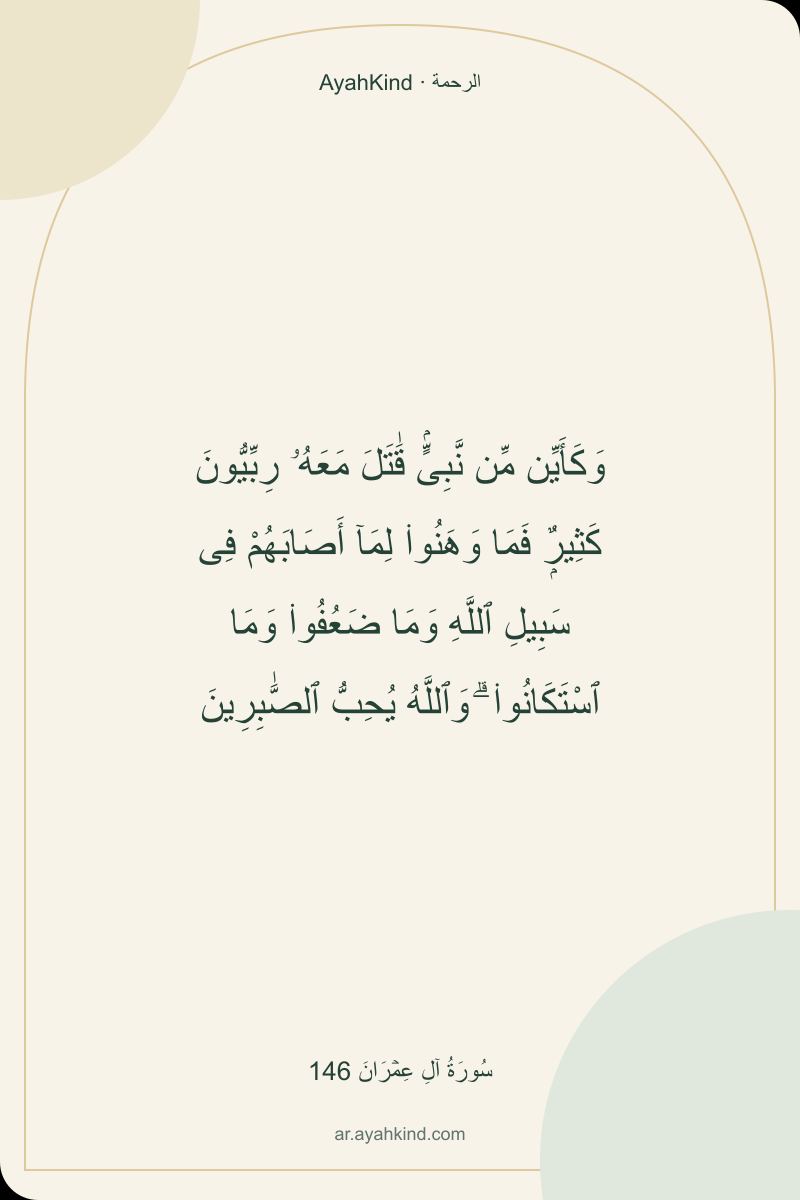 AyahKind · الرحمة
وَكَأَيِّن مِّن نَّبِىٍّۢ قَٰتَلَ مَعَهُۥ رِبِّيُّونَ
كَثِيرٌۭ فَمَا وَهَنُوا۟ لِمَآ أَصَابَهُمْ فِى
سَبِيلِ ٱللَّهِ وَمَا ضَعُفُوا۟ وَمَا
ٱسْتَكَانُوا۟ ۗ وَٱللَّهُ يُحِبُّ ٱلصَّٰبِرِينَ
سُورَةُ آلِ عِمۡرَانَ 146
ar.ayahkind.com